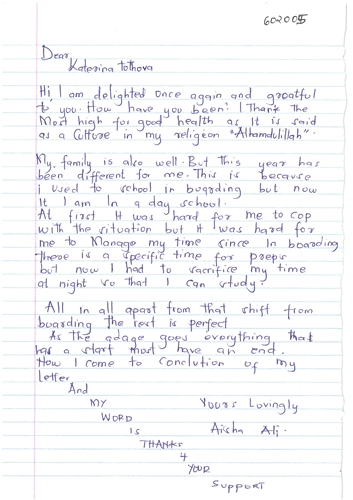 602005
Dear
Katerina Tothova
Hi, I am delighted once again and greatful
to you. How have you been? I Thank the
Most high for good health as It is said
as a Culture in my religion "Alhamdulillah".
My family is also well. But this year has
been different for me. This is because
i used to school in boarding but now
It I am In a day school.
At first It was hard for me to cop
with the situation but It was hard for
me to Manage my time since In boarding
there is a specific time for preps
but now I had to sacrifice my time
at night so that I can study.
All in all apart from that shift from
boarding the rest is perfect
As the adage goes everything that
has a start must have an end.
Now I come to conclution of my
letter
And
MY Yours Lovingly
WORD
IS Aisha Ali.
THANKS
4
YOUR
SUPPORT